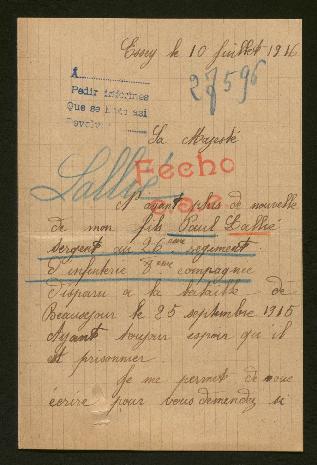 Essey le 10 Juillet 1916
27596
A
Pedir informes
Que se
Devolver
Sa Majesté
Lallié
Fecho
N ayant plus de nouvelle
de mon fils Paul Lallié
sergent au 26 eme regiment
d infanterie 8 eme compagnie
Disparu a la bataille de
Beausejour le 25 septembre 1915
Ayant toujour espoir qu il
est prisonnier
Je me permet de vous
écrire pour vous demandez si